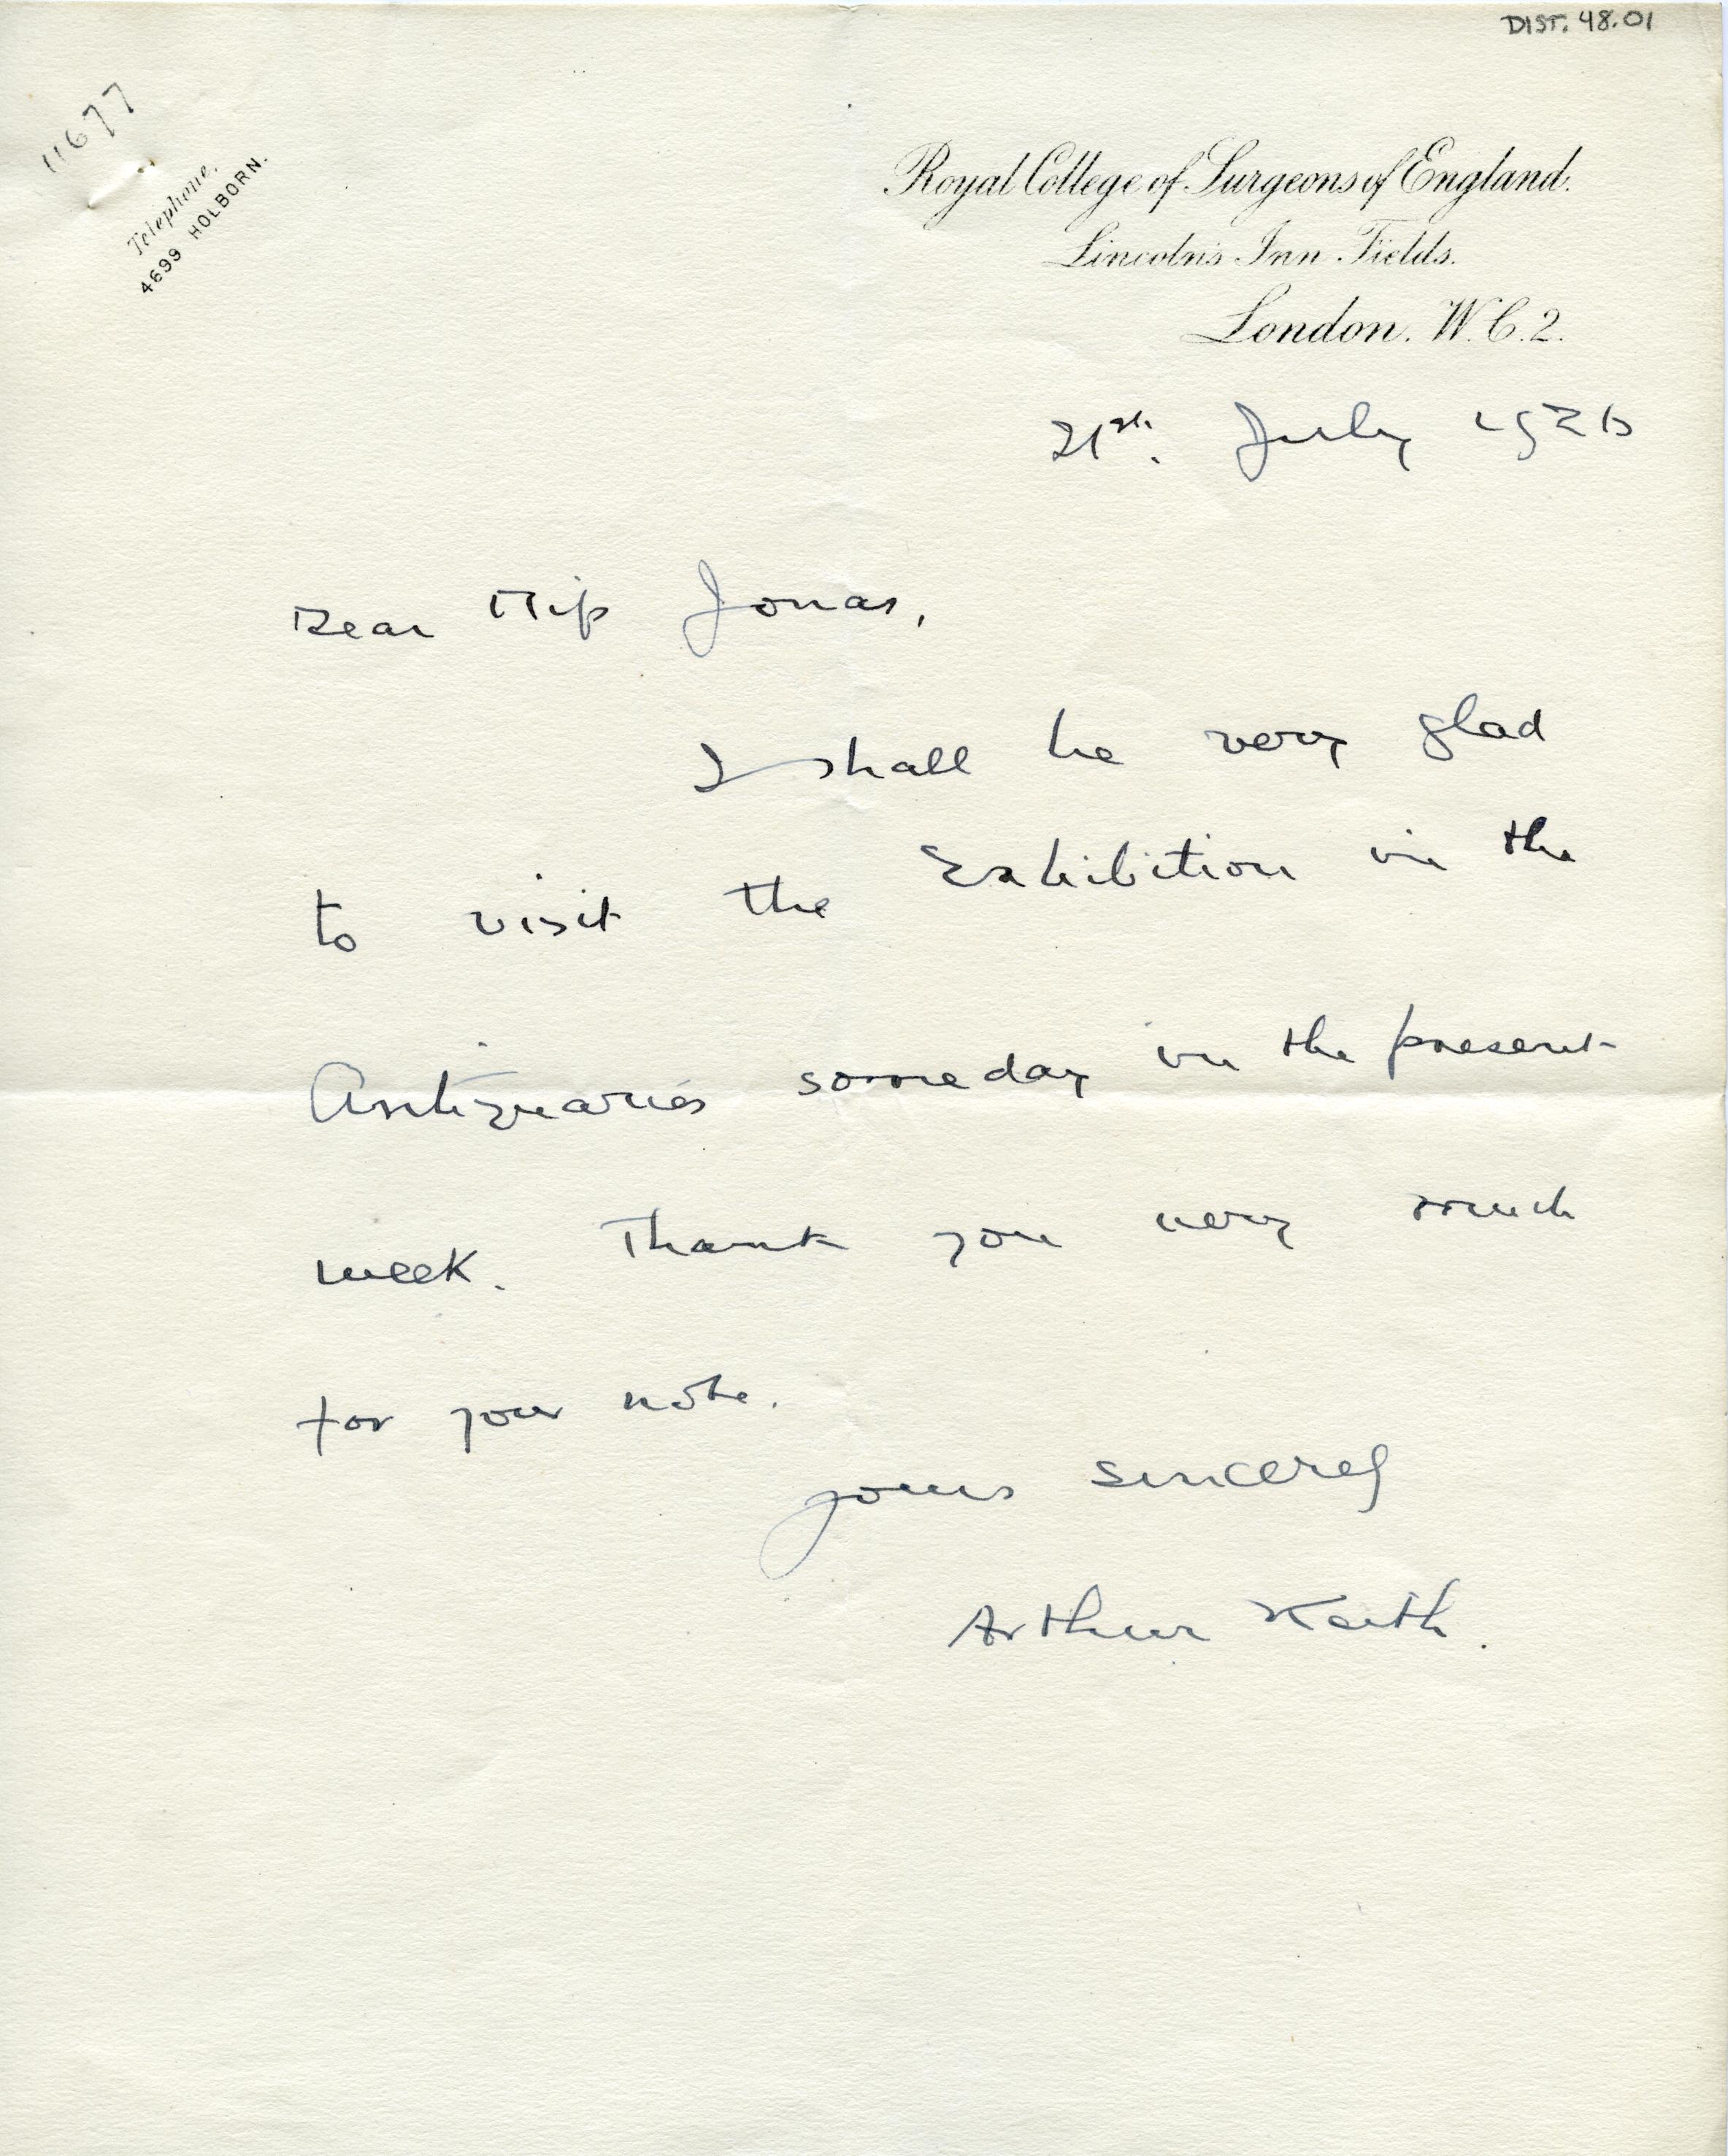 DIST. 48.01
11677
Telephone.
4699 HOLBORN.
Royal College of Surgeons of England.
Lincoln's Inn Fields.
London. W.C.2.
21st. July 1926
Dear Miss Jonas,
I shall be very glad
to visit the Exhibition in the
Antiquaries someday in the present
week. Thank you very much
for your note.
yours sincerely
Arthur Keith.